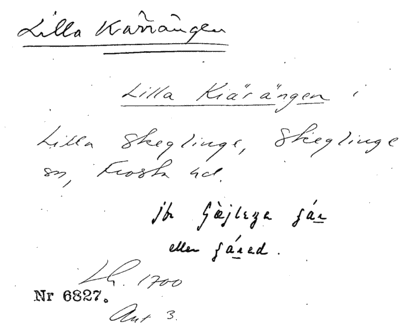 Lilla Kärrängen
Lilla Kiärängen i
Lilla Skeglinge, Skeglinge
sn, Frosta hd.
jfr
eller gåred.
Lh. 1700
Nr 6827.
Ant 3.